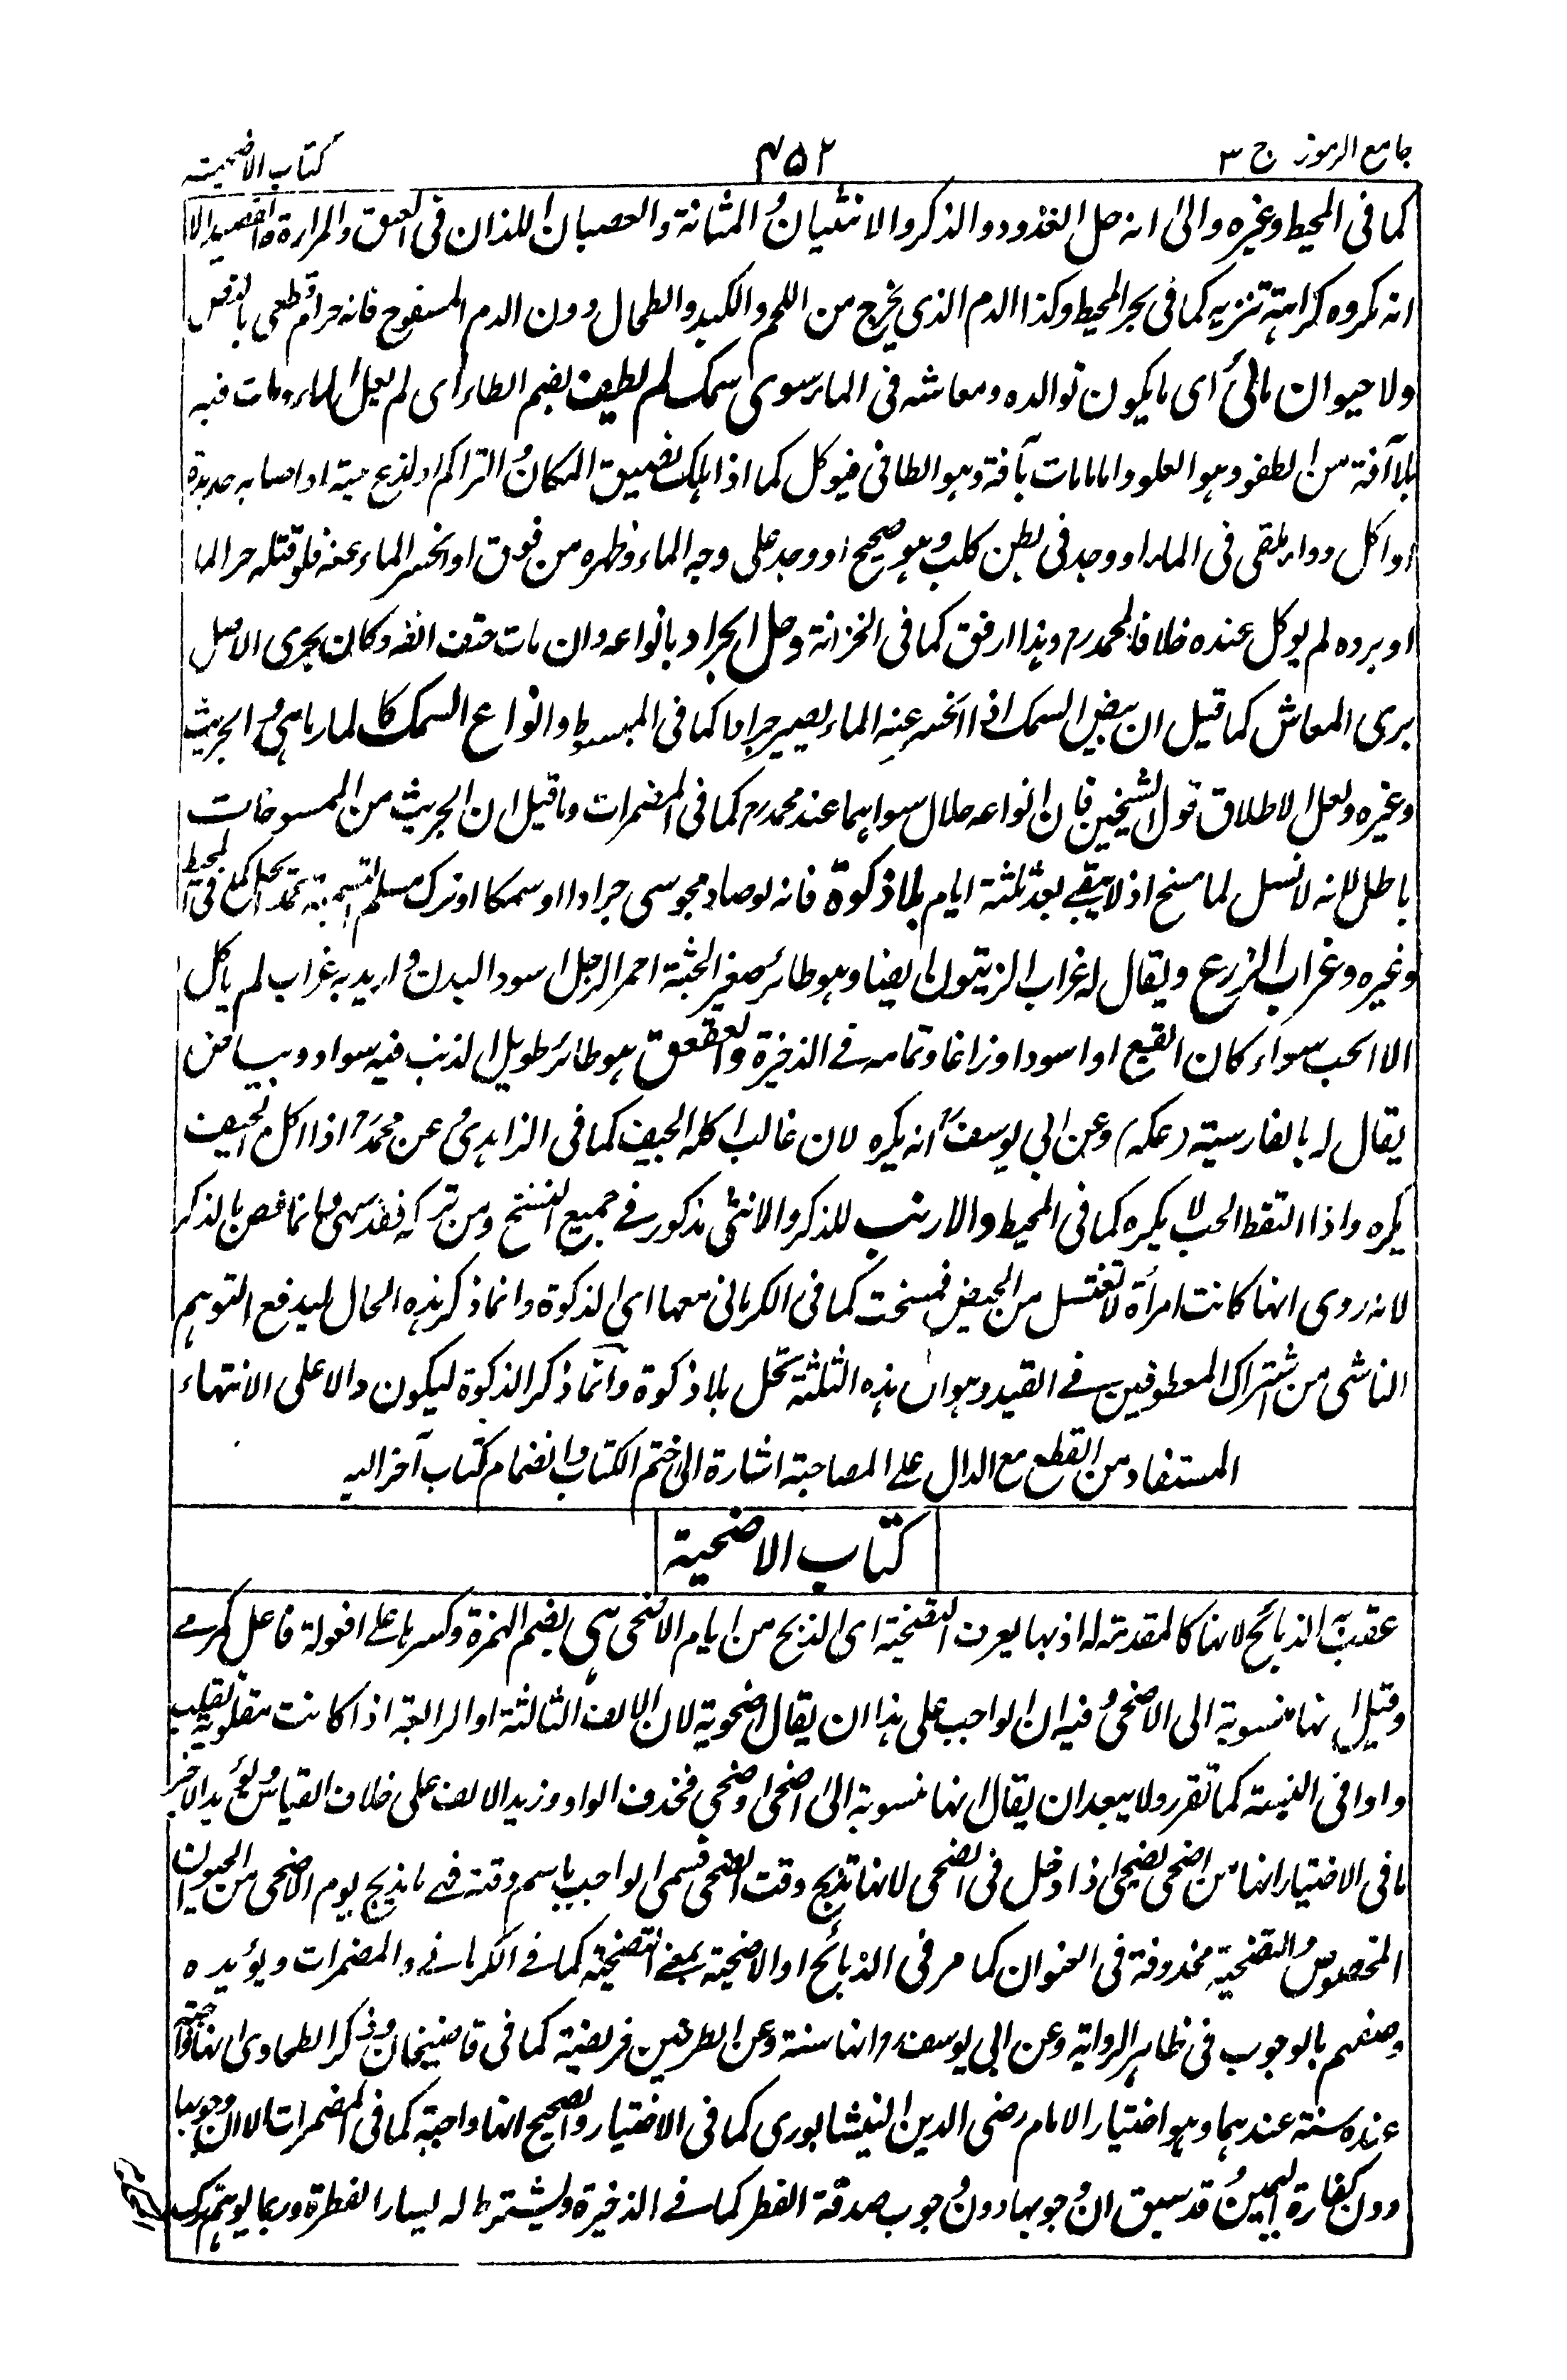 جامع الرموز ج ٣
٤٥٢
كتاب الاضحية
كما فى المحيط وغيره والى انه حل الغدود والذكر والانثيان والمثانة والعصبان اللذان فى العنق والمرارة والقصيد الا
انه مكروه كراهة تنزيه كما فى بحر المحيط وكذا الدم الذى يخرج من اللحم والكبد والطحال دون الدم المسفوح فانه حرام قطعى بالنص
ولا حيوان مائى اى ما يكون توالده ومعاشه فى الماء سوى سمك لم يطف بضم الطاء اى لم يعل الماء ومات فيه
بلا آفة من الطفو وهو العلو واما ما مات بآفة وهو الطافى فيوكل كما اذا هلك لضيق المكان والتراكم او لذع حية او اصابه حديدة
او اكل دواء يلقى فى الماء او وجد فى بطن كلب وهو صحيح او وجد على وجه الماء وظهره من فوق او انحسر الماء عنه فلو قتله حر الماء
او برده لم يوكل عنده خلافا لمحمد رح وهذا ارفق كما فى الخزانة وحل الجراد بانواعه وان مات حتف انفه وكان بحرى الاصل
برى المعاش كما قيل ان بيض السمك اذا انحسر عنه الماء يصير جرادا كما فى المبسوط وانواع السمك كالمارماهى والجريث
وغيره ولعل الاطلاق قول الشيخين فان انواعه حلال سواهما عند محمد رح كما فى المضمرات وما قيل ان الجريث من الممسوخات
باطل لانه لا نسل لما مسخ اذ لا يبقى بعد ثلثة ايام بلا ذكوة فانه لو صاد مجوسى جرادا او سمكا او ترك مسلم التسمية عمدا يحل اكله كما فى المحيط
وغيره وغراب الزرع ويقال له غراب الزيتون ايضا وهو طائر صغير الجثة احمر الرجل اسود البدن واريد به غراب لم ياكل
الا الحب سواء كان ابقع او اسود او زاغا وتمامه فى الذخيرة والعقعق هو طائر طويل الذنب فيه سواد وبياض
يقال له بالفارسية (عكه) وعن ابى يوسف رح انه يكره لان غالب اكله الجيف كما فى الزاهدى وعن محمد رح اذا اكل الجيف
يكره واذا التقط الحب لا يكره كما فى المحيط والارنب للذكر والانثى مذكور فى جميع النسخ ومن تركه فقد سهى وانما خص بالذكر
لانه روى انها كانت امرأة لا تغتسل من الحيض فمسخت كما فى الكرمانى معها اى الذكوة وانما ذكر هذه الحال ليدفع التوهم
الناشى من اشتراك المعطوفين فى القيد وهو ان هذه الثلثة تحل بلا ذكوة وانما ذكر الذكوة ليكون دالا على الانتهاء
المستفاد من القطع مع الدال على المصاحبة اشارة الى ختم الكتاب وانضمام كتاب آخر اليه
كتاب الاضحية
عقب الذبائح لانها كالمقدمة له اذ بها يعرف التضحية اى الذبح من ايام الاضحى هى بضم الهمزة وكسرها على افعولة فاعل كرمى
وقيل انها منسوبة الى الاضحى وفيه ان الواجب على هذا ان يقال اضحوية لان الالف الثالثة او الرابعة اذا كانت منقلوبة تقلب
واوا فى النسبة كما تقرر ولا يبعد ان يقال انها منسوبة الى اضحى او ضحى فحذف الواو وزيد الالف على خلاف القياس ويؤيد الاخير
ما فى الاختيار انها من اضحى يضحى اذا دخل فى الضحى لانها تذبح وقت الضحى فسمى الواجب باسم وقته فهى ما يذبح يوم الاضحى من الحيوان
المخصوص والتضحية محذوفة فى العنوان كما مر فى الذبائح او الاضحية بمعنى التضحية كما فى الكرمانى والمضمرات ويؤيده
وصفهم بالوجوب فى ظاهر الرواية وعن ابى يوسف رح انها سنة وعن الطرفين فريضة كما فى قاضيخان وذكر الطحاوى انها واجبة
عنده سنة عندهما وهو اختيار الامام رضى الدين النيشابورى كما فى الاختيار والصحيح انها واجبة كما فى المضمرات الا ان وجوبها
دون كفارة اليمين قد سبق ان وجوبها دون وجوب صدقة الفطر كما فى الذخيرة ويشترط له يسار الفطرة وربما يوهم